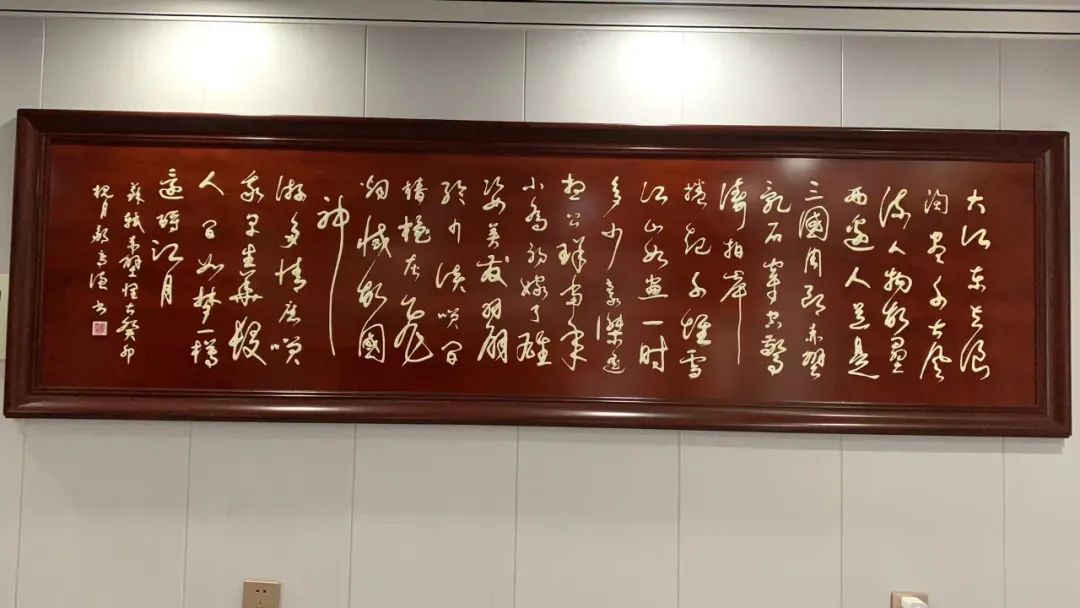 大江东去浪
淘尽千古风
流人物故壘
西边人道是
三國周郎赤壁
乱石穿空驚
濤拍岸
捲起千堆雪
江山如画一时
多少豪傑遥
想公瑾当年
小喬初嫁了雄
姿英发羽扇
纶巾谈笑间
檣櫓灰飞
烟滅故國
神
游多情应笑
我早生華髮
人间如梦一樽
还酹江月
蘇軾赤壁怀古癸卯
月 书